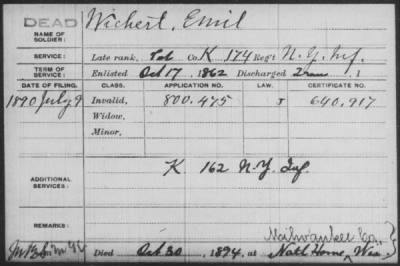 DEAD
Wichert, Emil
NAME OF SOLDIER:
SERVICE: Late rank, Co. K 174 Reg't N.Y. Inf.
TERM OF SERVICE: Enlisted Oct 17, 1862 Discharged , 1
DATE OF FILING. CLASS. APPLICATION NO. LAW. CERTIFICATE NO.
1890 July 9 Invalid, 800.475 J 640.917
Widow,
Minor,
ADDITIONAL SERVICES: K 162 N.Y. Inf.
REMARKS:
Milwaukee Co.,
Died Oct 30, 1894, at Natl Home, Wis